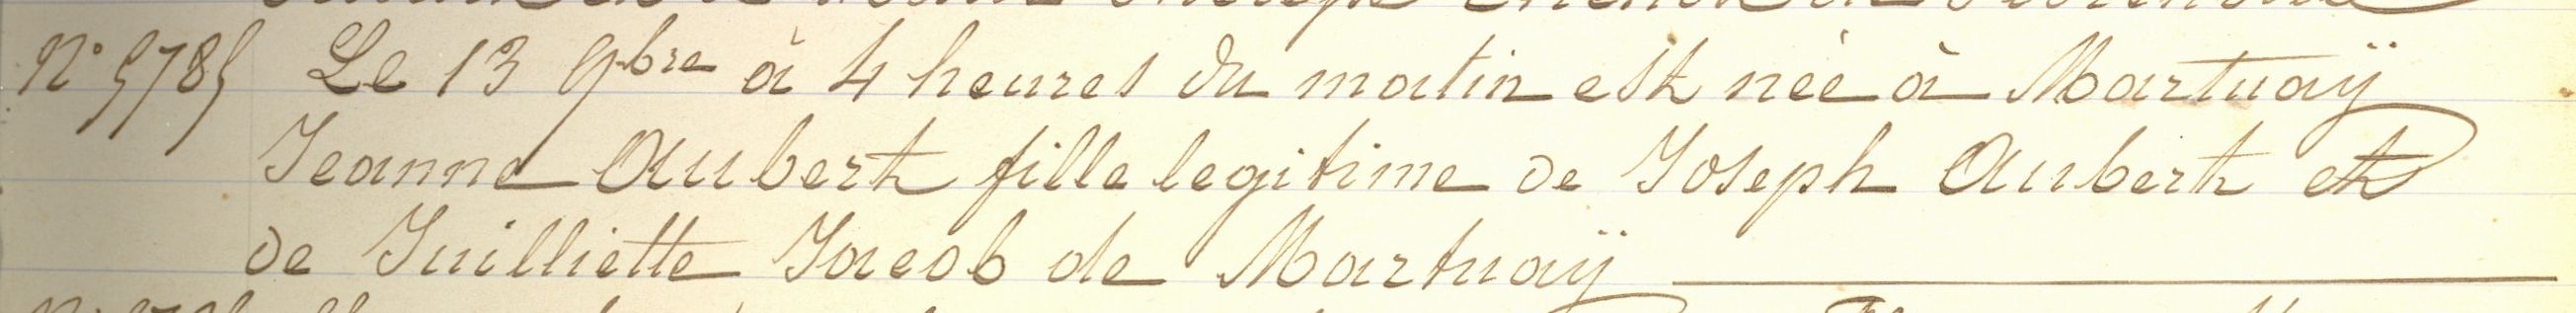 N° 5785 Le 13 9bre à 4 heures du matin est née à Martuaÿ
Jeanne Aubert fille legitime de Joseph Aubert et
de Juilliette Jacob de Martuaÿ